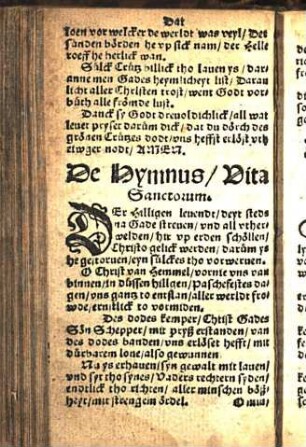 Dat
loen vor welcker de werldt was veyl / Der
sünden börden he vp sick nam / der Helle
roeff he herlick wan.
Sülck Crütz billick tho lauen ys / dar-
anne men Gades heymlicheyt list / Darau
licht aller Christen trost / went Godt vor-
büth alle frömde lust.
Danck sy Godt dreuoldichlick / all wat
leuet pryset darüm dick / dat du dörch des
grönen Crützes dode / vns heffst erlöst vth
ewger nodt / AMEN.
De Hymnus / Vita
Sanctorum.
DEr Hilligen leuendt / deyt steds
na Gade streuen / vnd all vther-
welden / hir vp erden schöllen /
Christo gelick werden / darüm ys
he gestoruen / eyn sülckes tho vorweruen.
O Christ van Hemmel / vornie vns van
binnen / in düssen hilgen / Paschefestes da-
gen / vns gantz to entstan / aller werldt frow-
de / ernstlick to vormiden.
Des dodes Kemper / Christ Gades
Sön Schepper / mit pryß erstanden / van
des dodes banden / vns erlöset hefft / mit
dürbarem lone / also gewunnen.
Nu ys erhauen / syn gewalt mit lauen /
vnd syt tho synes / Vaders rechtern syden /
endtlick tho richten / aller minschen böß-
heyt / mit strengem ördel.